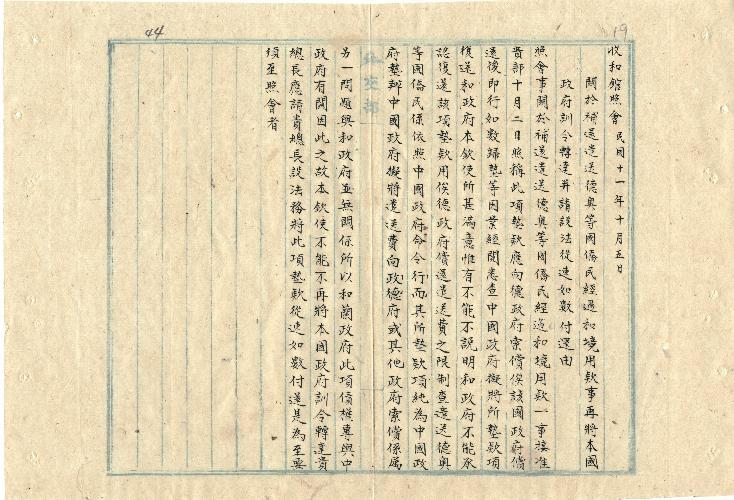 44
19
收和館照會民國十一年十月五日
關於補還遣送德奧等國僑民經過和境用欵事再將本國
政府訓令轉達并請設法從速如數付還由
照會事關於補還遣送德奧等國僑民經過和境用欵一事接准
貴部十月二日照稱此項墊欵應向德政府索償俟該國政府償
還後即行如數歸墊等因業經閱悉查中國政府擬將所墊欵項
復還和政府本欽使所甚滿意惟有不能不說明和政府不能承
認復還該項墊欵用俟德政府償還遣送費之限制查遣送德奧
等國僑民係依照中國政府命令行而其所墊欵項純為中國政
府墊辦中國政府擬將遣送費向政德府或其他政府索償係屬
另一問題與和政府並無關係所以和蘭政府此項債權專與中
政府有關因此之故本欽使不能不再將本國政府訓令轉達貴
總長應請貴總長設法務將此項墊欵從速如數付還是為至要
須至照會者
外交部